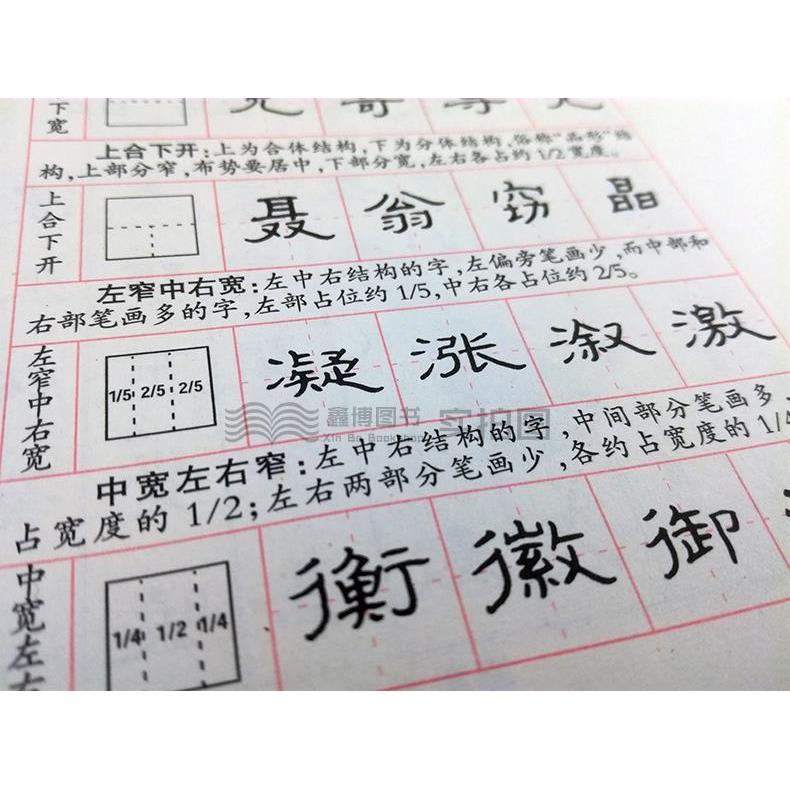 下宽
上合下开:上为合体结构,下为分体结构,俗称"品形"结
构,上部分窄,布势要居中,下部分宽,左右各占约1/2宽度。
上合下开 聂 翁 窈 晶
左窄中右宽:左中右结构的字,左偏旁笔画少,而中部和
右部笔画多的字,左部占位约1/5,中右各占位约2/5。
左窄中右宽 1/5 2/5 2/5 凝 涨 溆 激
鑫博图书 实拍图
Xin Bo Bookshop
中宽左右窄:左中右结构的字,中间部分笔画多,
占宽度的1/2;左右两部分笔画少,各约占宽度的1/4
中宽左右 1/4 1/2 1/4 衡 徽 御